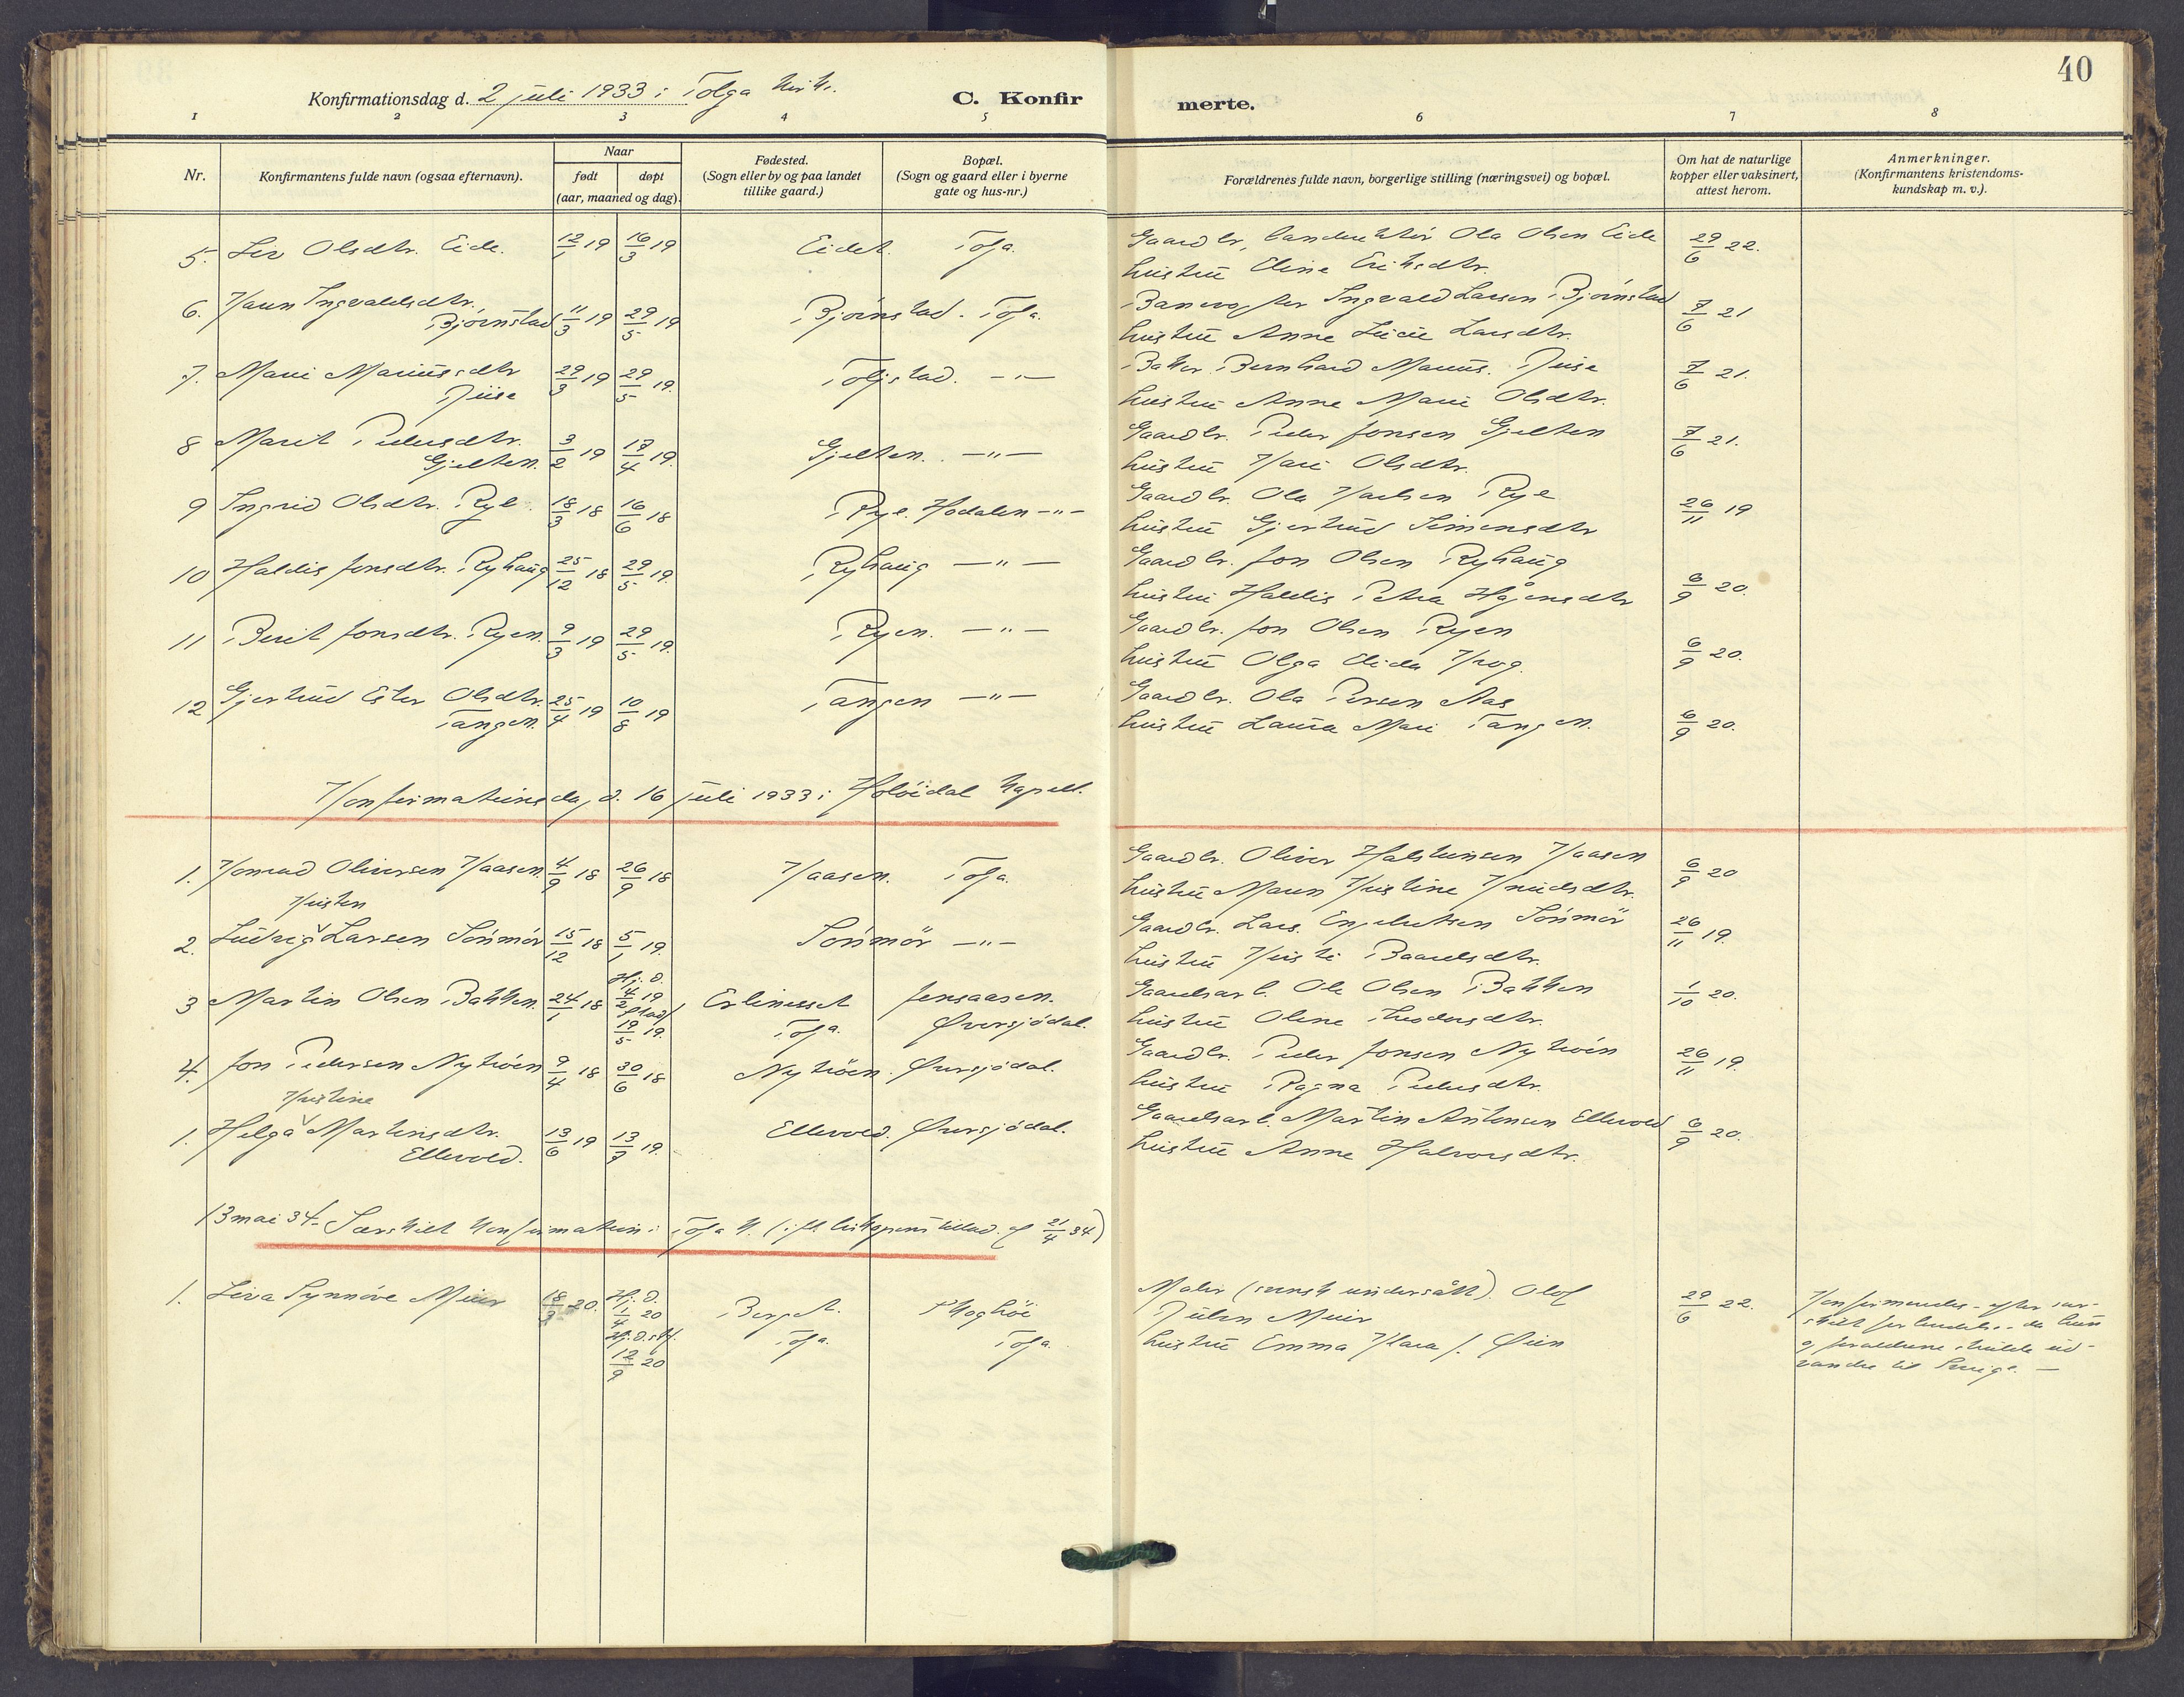 40
Konfirmationsdag d. 2 juli 1933 i Tolga kirke.
C. Konfirmerte.
1 2 3 4 5 6 7 8
Nr.
Konfirmantens fulde navn (ogsaa efternavn).
Naar
født
døpt
(aar, maaned og dag).
Fødested.
(Sogn eller by og paa landet
tillike gaard.)
Bopæl.
(Sogn og gaard eller i byerne
gate og hus-nr.)
Forældrenes fulde navn, borgerlige stilling (næringsvei) og bopæl.
Om hat de naturlige
kopper eller vaksinert,
attest herom.
Anmerkninger.
(Konfirmantens kristendoms-
kundskap m. v.).
5. Liv Olsdtr. Eide. 12/1 19 16/3 19 Eidet. Tolga. Gaardbr, Ola Olsen Eide 29/6 22.
hustru Eline Eriksdtr.
6. Karen Ingvaldsdtr.
Bjørnstad 11/3 19 29/5 19 Bjørnstad. Tolga. Banevogter Ingvald Larsen Bjørnstad 7/6 21
hustru Anne Lucie Larsdtr.
7. Mari Mariusdtr 29/3 19 29/5 19. Tolgstad. -"- Baker Bernhard Marius 7/6 21.
hustru Anne Marie Olsdtr.
8 Marit Pedersdtr.
Gjelten. 3/2 19 17/4 19. Gjelten. -"- Gaardbr. Peder Jonsen Gjelten 7/6 21.
hustru Kari Olsdtr.
9 Ingrid Olsdtr. Rye. 18/3 18 16/6 18 Rye. Hodalen -"- Gaardbr. Ola Karlsen Rye 26/11 19
hustru Gjertrud Simensdtr
10 Haldis Jonsdtr. Ryhaug 25/12 18 29/5 19. Ryhaug -"- Gaardbr. Jon Olsen Ryhaug 6/9 20.
hustru Haldis Petra Hågensdtr
11 Berit Jonsdtr. Ryen. 9/3 19 29/5 19. Ryen. -"- Gaardbr. Jon Olsen Ryen 6/9 20.
hustru Olga Elida Krog.
12 Gjertrud Ester Olsdtr.
Tangen. 25/4 19 10/8 19 Tangen -"- Gaardbr. Ola Persen Aas 6/9 20.
hustru Laura Mari Tangen.
Konfirmationsdag d. 16 juli 1933 i Holøidal kapell.
1. Konrad Oliversen Kaasen. 4/9 18 26/9 18 Kaasen. Tolga. Gaardbr. Oliver Halsteinsen Kaasen 6/9 20
hustru Maren Kristine Knudsdtr.
Kristen
2. Ludvig Larsen Sømmør 15/12 18 5/1 19. Sømmør -"- Gaardbr. Lars Engebretsen Sømmør 26/11 19.
hustru Kristi Baardsdtr.
3 Martin Olsen Bakken. 24/1 18 Hj. d. 4/2 19 stadf. 19/5 19. Erlinesset
Tolga. Jensaasen.
Øversjødal. Gaardsarb. Ole Olsen Bakken 1/10 20.
hustru Oline Teodorsdtr.
4. Jon Pedersen Nytrøen 9/4 18 30/6 18 Nytrøen. Øversjødal. Gaardbr. Peder Jonsen Nytrøen 26/11 19.
hustru Ragna Pedersdtr.
Kristine
1. Helga Martinsdtr.
Ellevold. 13/6 19 13/9 19. Ellevold. Øversjødal. Gaardsarb. Martin Antonsen Ellevold 6/9 20.
hustru Anne Halvorsdtr.
13 mai 34. Særskilt konfirmation i Tolga k. (ifl. biskopens tillad. af 21/4 34)
1. Liva Synnøve Meier 18/3 20. Hj. D. 1/4 20 Hj. d. stf. 12/9 20 Berget.
Tolga. Skoghøi
Tolga. Maler (svensk undersått). Olof
Meier 29/6 22.
hustru Emma Klara f. Øien
Konfirmeredes efter sær-
skilt forberedelse, da hun
og forældrene skulde ud-
vandre til Sverige. -